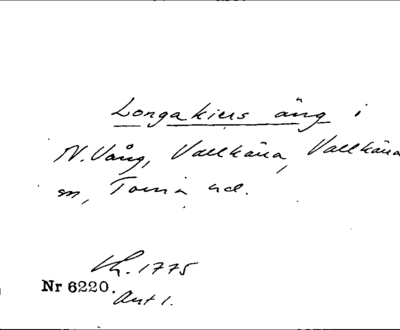 Longakiers äng i
N. Vång, Vallkärra, Vallkärra
sn, Torna hd.
Lh. 1775
Nr 6220.
Ant 1.